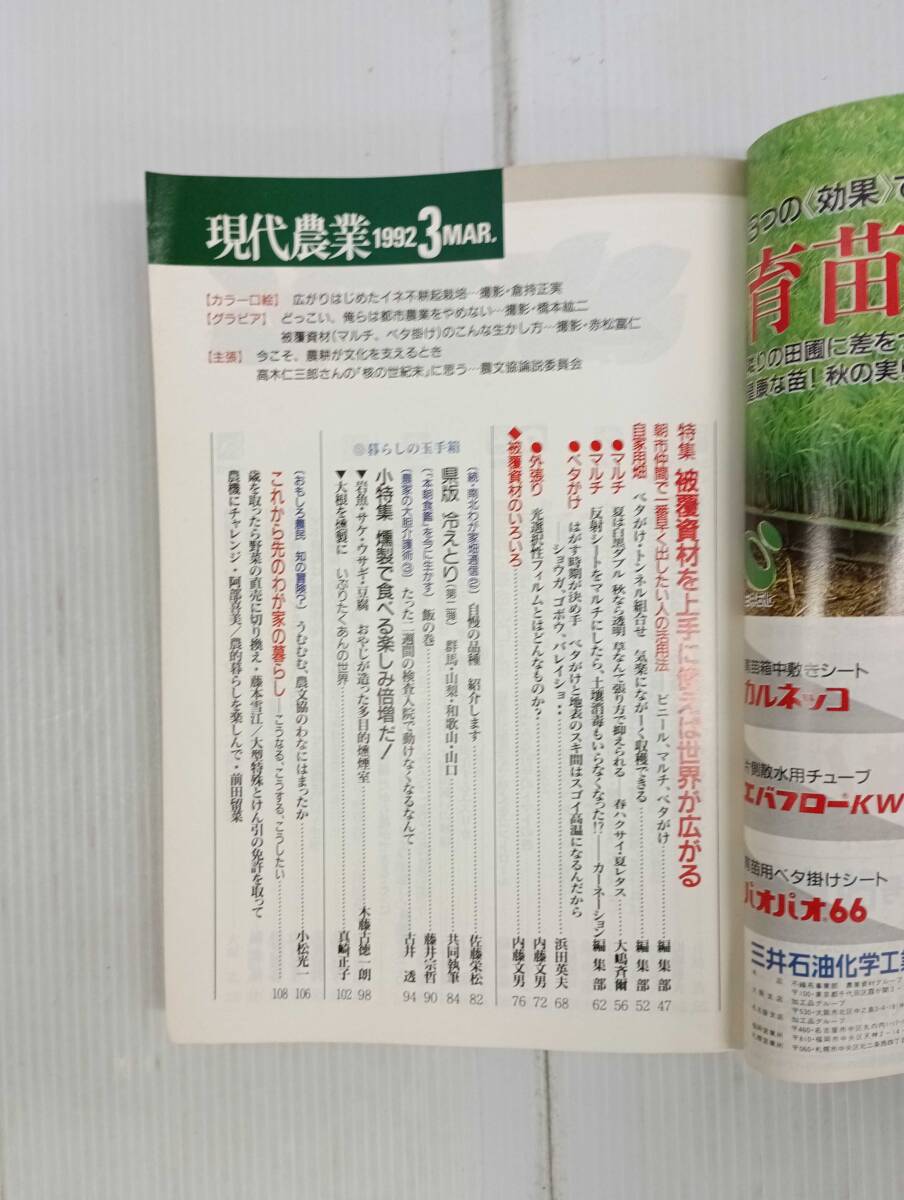 現代農業 1992 3 MAR.
【カラー口絵】 広がりはじめたイネ不耕起栽培…撮影・倉持正実
【グラビア】 どっこい、俺らは都市農業をやめない…撮影・橋本紘二
被覆資材(マルチ、ベタ掛け)のこんな生かし方…撮影・赤松富仁
【主張】 今こそ、農耕が文化を支えるとき
高木仁三郎さんの「核の世紀末」に思う…農文協論説委員会
特集 被覆資材を上手に使えば世界が広がる
朝市仲間で一番早く出したい人の活用法 ビニール、マルチ、ベタがけ 編集部 47
自家用畑 ベタがけ・トンネル組合せ 気楽にながーく収穫できる 編集部 52
●マルチ 夏は白黒ダブル 秋なら透明 草なんて張り方で抑えられる──春ハクサイ・夏レタス 大嶋斉爾 56
●マルチ 反射シートをマルチにしたら、土壌消毒もいらなくなった!?──カーネーション 編集部 62
●ベタがけ はがす時期が決め手 ベタがけと地表のスキ間はスゴイ高温になるんだから
──ショウガ、ゴボウ、バレイショ… 浜田英夫 68
●外張り 光選択性フィルムとはどんなものか? 内藤文男 72
◆被覆資材のいろいろ 内藤文男 76
◎暮らしの玉手箱
(続・南北わが家畑通信②) 自慢の品種 紹介します 佐藤栄松 82
県版 冷えとり(第二弾) 群馬・山梨・和歌山・山口 共同執筆 84
(「本朝食鑑」を今に生かす) 飯の巻 藤井宗哲 90
(農家の大胆介護術③) たった二週間の検査入院で動けなくなるなんて 古井 透 94
小特集 燻製で食べる楽しみ倍増だ!
▼岩魚・サケ・ウサギ・豆腐 おやじが造った多目的燻煙室 木藤古徳一朗 98
▼大根を燻製に いぶりたくあんの世界 真崎正子 102
(おもしろ農民 知の冒険?) うむむむ、農文協のわなにはまったか 小松光一 106
これから先のわが家の暮らし──こうなる、こうする、こうしたい 108
歳を取ったら野菜の直売に切り換え・藤本雪江/大型特殊とけん引の免許を取って
農機にチャレンジ・阿部喜美/農的暮らしを楽しんで・前田留菜
つの《効果》で
育苗
りの田圃に差を
康な苗!秋の実り
苗箱中敷きシート
カルネッコ
側散水用チューブ
エバフロー®KW
苗用ベタ掛けシート
パオパオ®66
三井石油化学工業